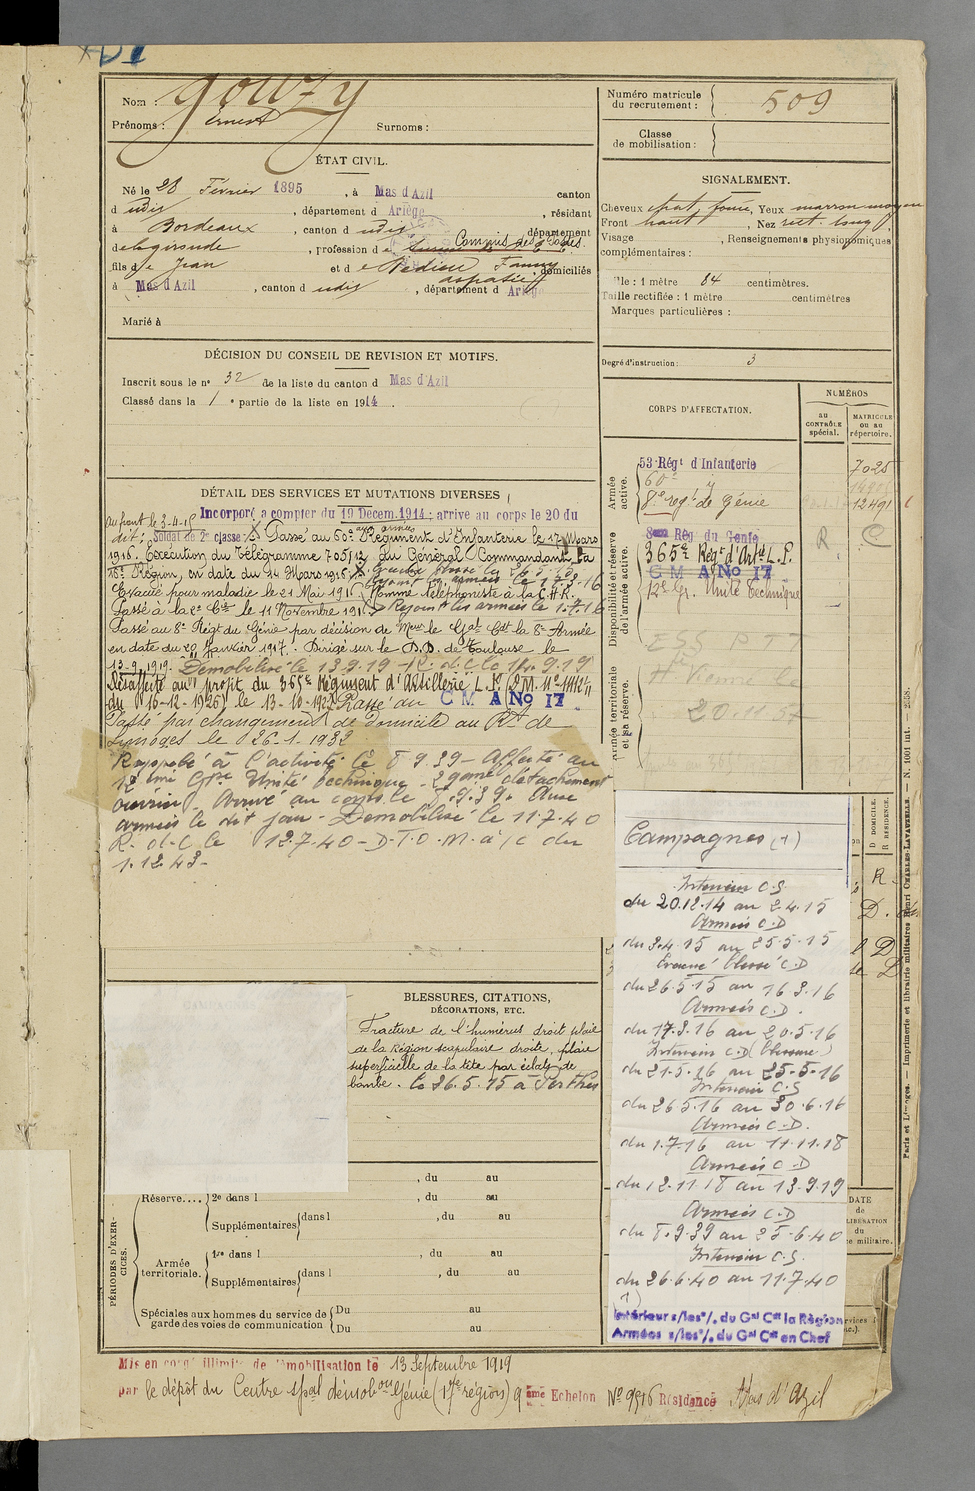 Nom : Gouzy
Prénoms : Ernest Surnoms :
Numéro matricule du recrutement : 509
Classe de mobilisation :
ÉTAT CIVIL.
Né le 28 Février 1895, à Mas d'Azil canton
d udis, département d Ariège, résidant
à Bordeaux, canton d udis, département
de la gironde, profession de Commis des Postes.
fils de Jean et de Fanny
aspasie, domiciliés
à Mas d'Azil, canton d udis, département d Ariège
Marié à
SIGNALEMENT.
Cheveux chat. foncé, Yeux marron moyen
Front haut, Nez rect. long
Visage , Renseignements physionomiques
complémentaires :
Taille : 1 mètre 84 centimètres.
Taille rectifiée : 1 mètre centimètres
Marques particulières :
Degré d'instruction : 3
DÉCISION DU CONSEIL DE REVISION ET MOTIFS.
Inscrit sous le n° 32 de la liste du canton d Mas d'Azil
Classé dans la 1e partie de la liste en 1914.
CORPS D'AFFECTATION.
NUMÉROS
au CONTRÔLE spécial.
MATRICULE ou au répertoire.
Armée active.
53 Régt d'Infanterie 7025
60e
8e régt de Génie 12491
Disponibilité et réserve de l'armée active.
8eme Rég du Genie R C
365e Régt d'Artie L.P.
C M A No 17
12e Gr. Unité Technique
Armée territoriale et sa réserve.
ESS PTT
Hte Vienne le
20.11.57
DÉTAIL DES SERVICES ET MUTATIONS DIVERSES
Incorporé a compter du 19 Décem. 1914; arrive au corps le 20 du
au front le 3-4-15
dit; Soldat de 2e classe; Passé au 60e Régiment d'Infanterie le 17 Mars
aux armées
1916. Exécution du Télégramme 705/12 du Général Commandant la
18e Région, en date du 14 Mars 1916.
Evacué pour maladie le 21 Mai 1916 Homme téléphoniste à la C.H.R.
Passé à la 2e Cie le 11 Novembre 191 Rejoint les armées le 1.7.16
Passé au 8e Régt du Génie par décision de Mr le Gal Ct la 8e Armée
en date du 20 Janvier 1917. Dirigé sur le D.D. de Toulouse le
13-9-1919. Démobilisé le 13.9.19 - R.d.C. le 14.9.19
Désaffecté au profit du 365e Régiment d'Artillerie L.P. (D.M. N° 11112/11
du 16-12-1926) le 13-10-1927. Passé au C M A No 17
Passé par changement de domicile au Rt de
Limoges le 26-1-1932
Rappelé à l'activité le 8.9.39 - Affecté au
12 ème Gpe Unité technique - 2 ème détachement
ouvrier - Arrivé au corps le 8.9.39. Aux
armées le dit jour - Démobilisé le 11-7-40
R-d-C le 12.7.40 - D-T-O-M. à/c du
1.12.43 -
BLESSURES, CITATIONS,
DÉCORATIONS, ETC.
Fracture de l'humérus droit plaie
de la région scapulaire droite, plaie
superficielle de la tête par éclats de
bombe. le 26.5.15 à Perthes
Campagnes (1)
Intérieur C.S.
du 20.12.14 au 2.4.15
Armées C.D
du 3.4.15 au 25.5.15
Evacué blessé C.D
du 26.5.15 au 16.3.16
Armées C.D.
du 17.3.16 au 20.5.16
Intérieur C.D (blessure)
du 21.5.16 au 25.5.16
Intérieur C.S
du 26.5.16 au 30.6.16
Armées C.D.
du 1.7.16 au 11.11.18
Armées C.D
du 12.11.18 au 13.9.19
Armées C.D
du 8.9.39 au 25.6.40
Intérieur C.S.
du 26.6.40 au 11.7.40
(1)
Intérieur s/les °/. du Gal Ct la Région
Armées s/les °/. du Gal Ct en Chef
D DOMICILE.
R RÉSIDENCE.
DATE
de
LIBÉRATION
du
service militaire.
PÉRIODES D'EXERCICES.
, du au
Réserve.... 2e dans l , du au
Supplémentaires dans l , du au
Armée territoriale. 1re dans l , du au
Supplémentaires dans l , du au
Spéciales aux hommes du service de garde des voies de communication Du au
Du au
Mis en congé illimité de démobilisation le 13 Septembre 1919
par le dépôt du Centre spal démob on Génie (17e région) 9 ème Echelon No 9516 Résidence Mas d'Azil
Paris et Limoges. — Imprimerie et librairie militaires Henri CHARLES-LAVAUZELLE. — N. 1001 int. — 2558.